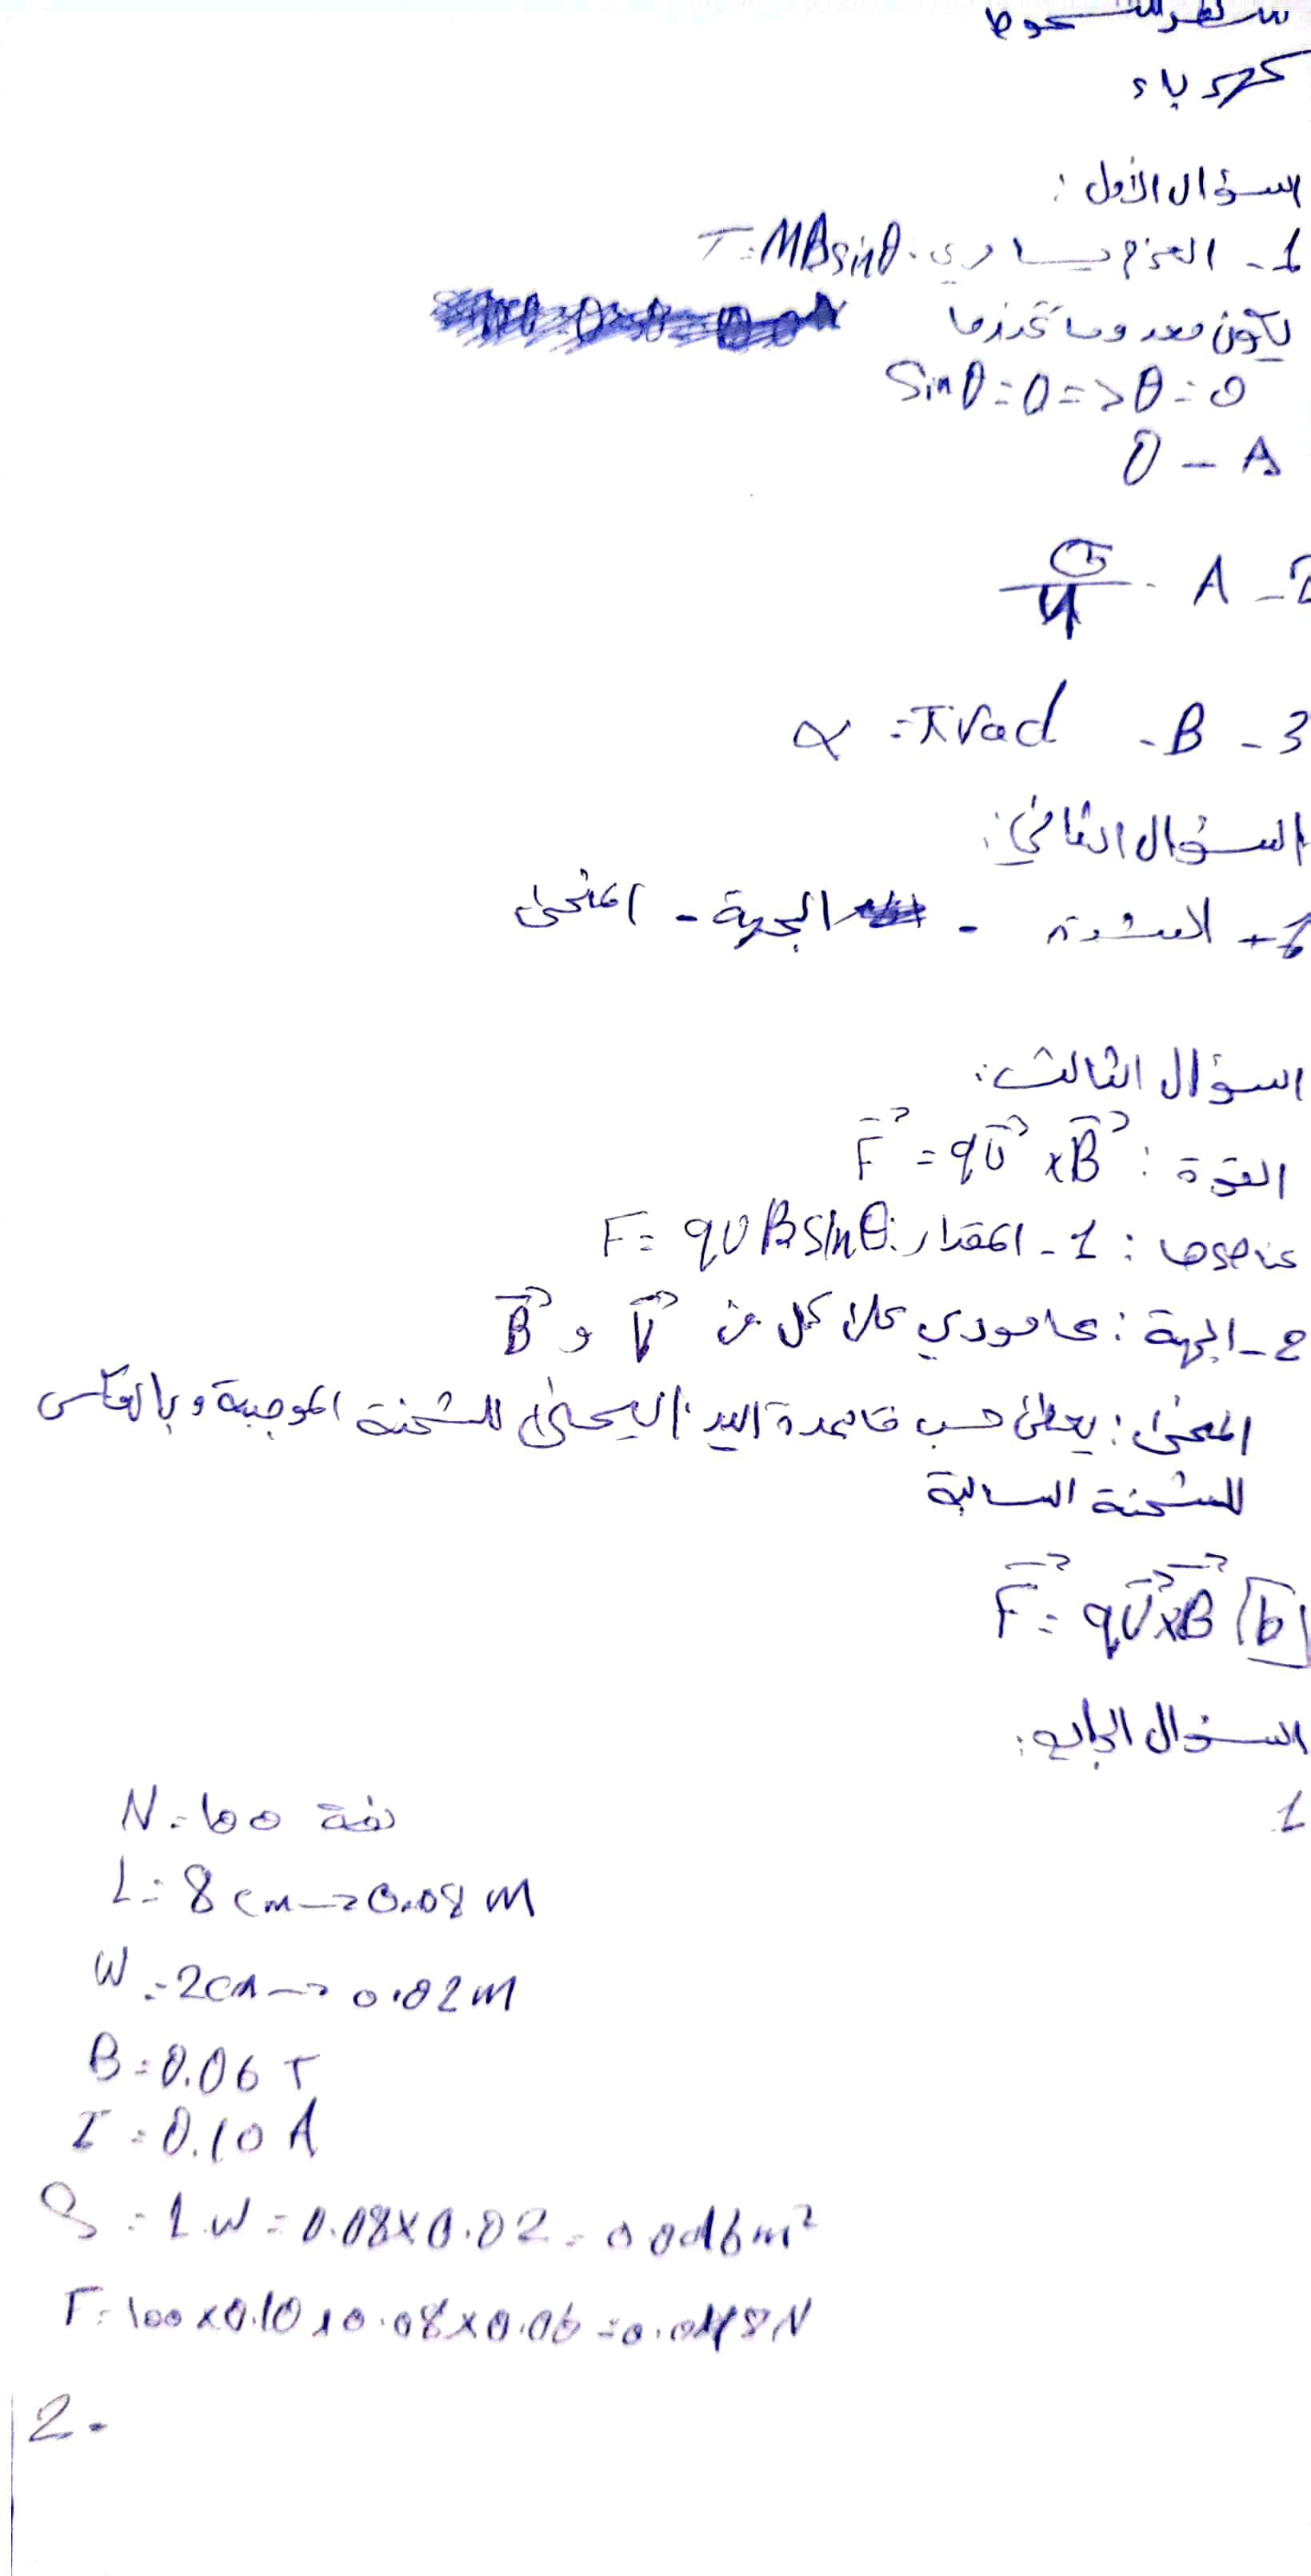 كهرباء
السؤال الأول :
1 - العزم يساوي . T = MBsinθ
يكون معدوماً عندما
Sinθ = 0 => θ = 0
A - 0
2 - A -
3 - B - α = π rad
السؤال الثاني :
1 - الشدة - الجهة - المنحى
السؤال الثالث :
القوة : F = qv × B
عناصرها : 1 - المقدار : F = qvBsinθ
2 - الجهة : عامودي على كل من V و B
المنحى : يعطى حسب قاعدة اليد اليمنى للشحنة الموجبة وبالعكس
للشحنة السالبة
b F = qv × B
السؤال الرابع :
1
N = 100 لفة
L = 8 cm → 0.08 m
W = 2cm → 0.02 m
B = 0.06 T
I = 0.10 A
S = L.W = 0.08 × 0.02 = 0.0016 m²
F = 100 × 0.10 × 0.08 × 0.06 = 0.048 N
2 -